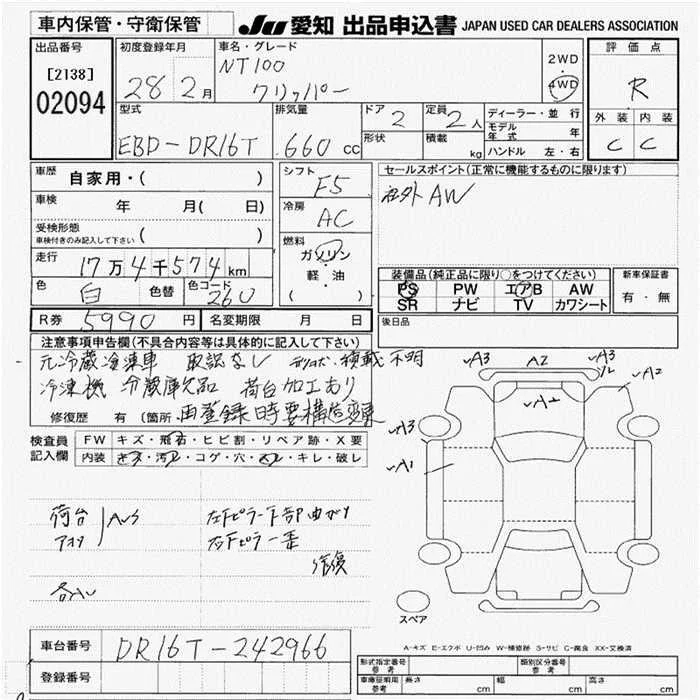 車内保管・守衛保管
JU 愛知 出品申込書 JAPAN USED CAR DEALERS ASSOCIATION
出品番号 [2138] 02094
初度登録年月 28 2月
車名・グレード NT100 クリッパー
2WD 4WD
評価点 R
外装 内装
C C
型式 EBD-DR16T
排気量 .660 cc
ドア 2
形状
定員 2人
積載 kg
ディーラー・並行
モデル年式 年
ハンドル 左・右
車歴 自家用・( )
車検 年 月( 日)
受検形態 車検付きのみ記入して下さい ( )
走行 17万4千574km
色 白 色替 色コード 260
シフト F5
冷房 AC
燃料 ガソリン・軽・油 ( )
セールスポイント(正常に機能するものに限ります)
社外 AW
装備品(純正品に限り○をつけてください)
PS PW エアB AW
SR ナビ TV カワシート
新車保証書 有・無
後日品
R券 5990円 名変期限 月 日
注意事項申告欄(不具合内容等は具体的に記入して下さい)
元冷蔵冷凍車 取説なし 積載不明
冷凍機 冷蔵庫欠品 荷台加工あり
修復歴 有(箇所 再登録時要構造変更
検査員記入欄
FW キズ・飛石・ヒビ割・リペア跡・X要
内装 キズ・汚れ・コゲ・穴・スレ・キレ・破レ
荷台 アオリ AUS
左下ピラー下部曲がり
右下ピラー歪
修復
各AU
A3 A2 A3 A2
A2
A3
A1
スペア
A-キズ E-エクボ U-凹み W-補修跡 S-サビ C-腐食 XX-交換済
車台番号 DR16T-242966
登録番号
形式指定番号 参考
類別区分番号 参考
車庫証明用 参考 長さ cm 幅 cm 高さ cm